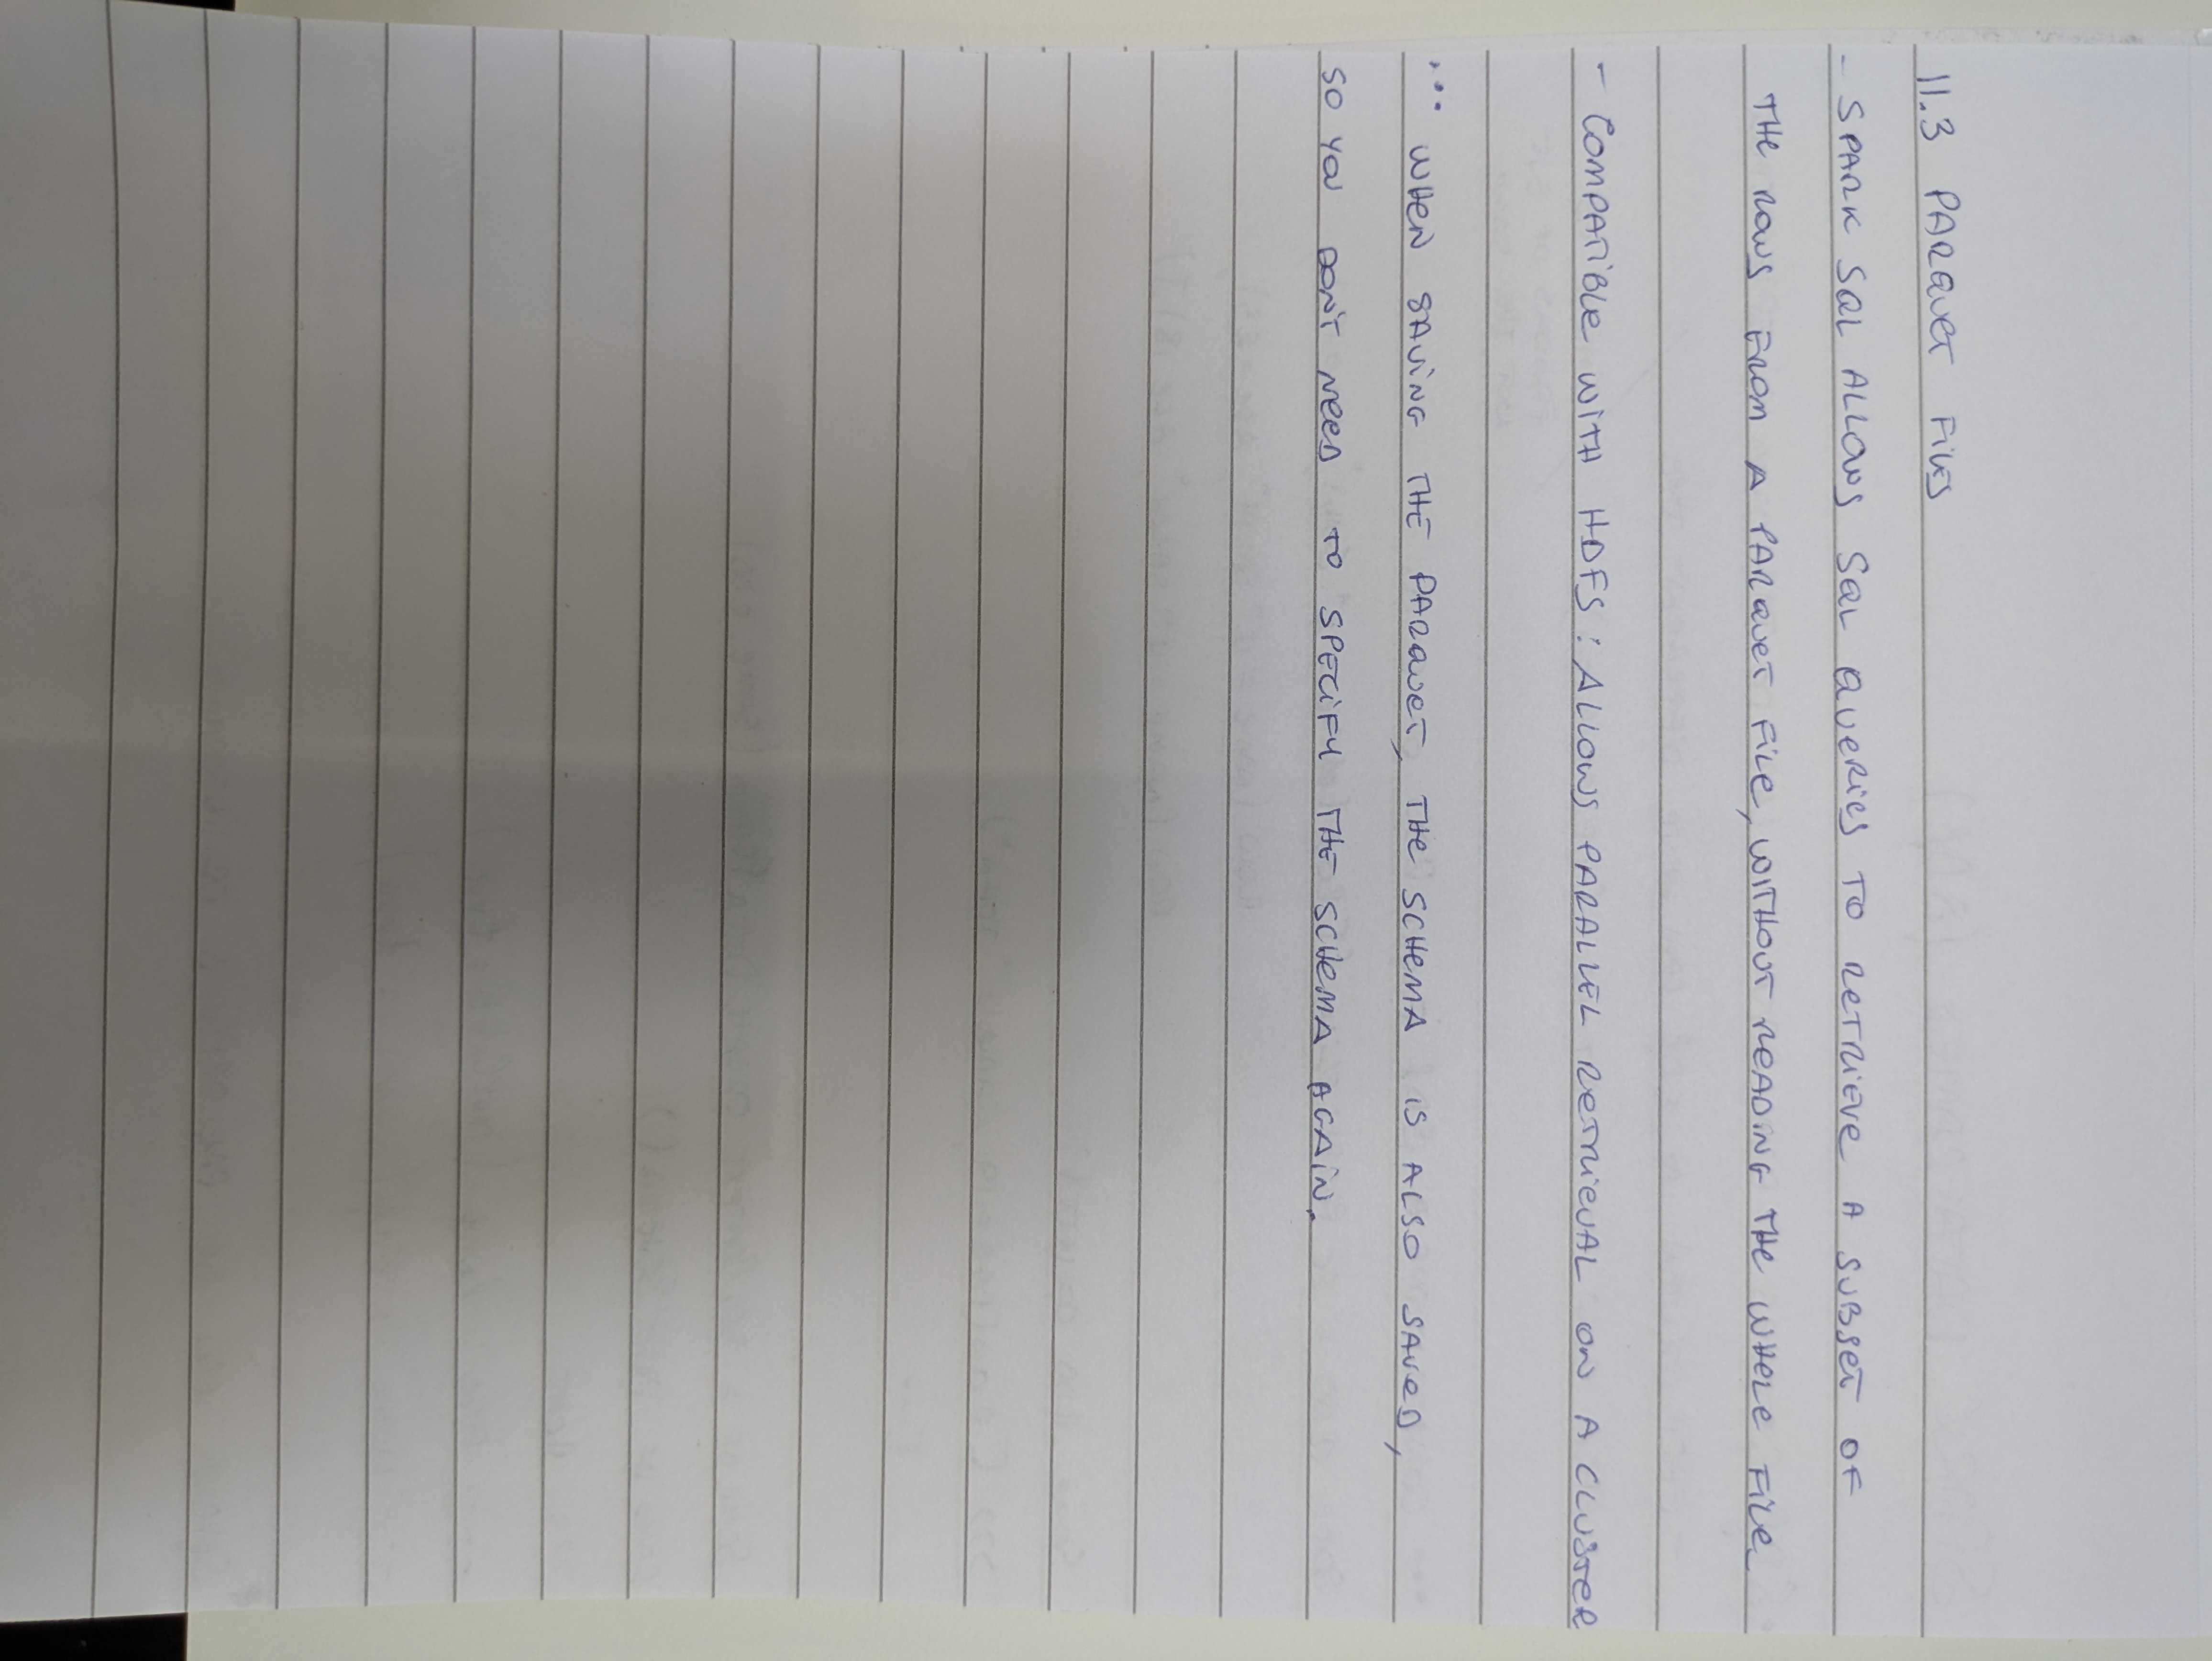 11.3 PARQUET FILES
- SPARK SQL ALLOWS SQL QUERIES TO RETRIEVE A SUBSET OF
THE ROWS FROM A PARQUET FILE, WITHOUT READING THE WHOLE FILE
- COMPATIBLE WITH HDFS: ALLOWS PARALLEL RETRIEVAL ON A CLUSTER
... WHEN SAVING THE PARQUET, THE SCHEMA IS ALSO SAVED,
SO YOU DON'T NEED TO SPECIFY THE SCHEMA AGAIN.